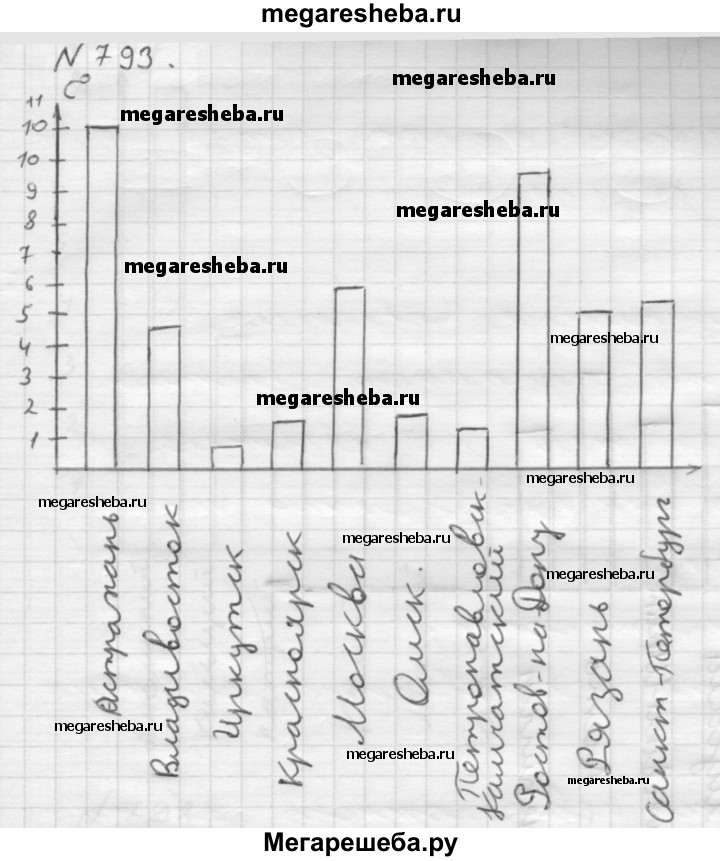 megaresheba.ru
N 793.
C°
megaresheba.ru
11
megaresheba.ru
10
10
9
megaresheba.ru
8
7
megaresheba.ru
6
5
megaresheba.ru
4
3
megaresheba.ru
2
1
megaresheba.ru
megaresheba.ru
megaresheba.ru
megaresheba.ru
Астрахань
Владивосток
Иркутск
Красноярск
Москва
Омск.
Петропавловск-
Камчатский
Ростов-на-Дону
Рязань
Санкт-Петербург
megaresheba.ru
megaresheba.ru
megaresheba.ru
Мегарешеба.ру